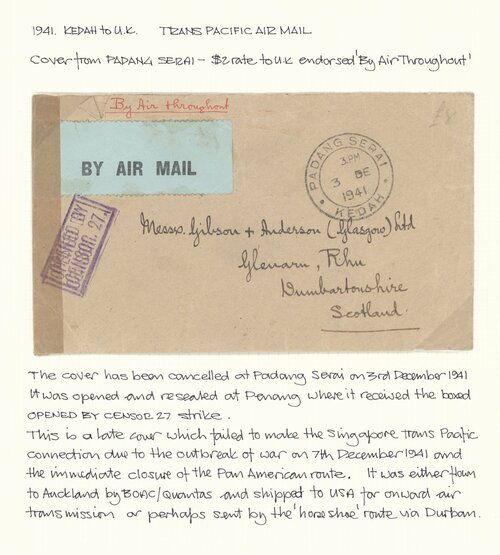 1941. KEDAH to U.K. TRANS PACIFIC AIR MAIL
Cover from PADANG SERAI - $2 rate to U.K endorsed 'By Air Throughout'
By Air throughout
£8
BY AIR MAIL
PADANG SERAI
3.PM
3 DE
1941
KEDAH
OPENED BY
CENSOR. 27.
Messrs. Gibson + Anderson (Glasgow) Ltd
Glenarn, Rhu
Dumbartonshire
Scotland.
The cover has been cancelled at Padang Serai on 3rd December 1941
It was opened and resealed at Penang where it received the boxed
OPENED BY CENSOR 27 strike.
This is a late cover which failed to make the Singapore Trans Pacific
connection due to the outbreak of war on 7th December 1941 and
the immediate closure of the Pan American route. It was either flown
to Auckland by BOAC/Quantas and shipped to USA for onward air
transmission or perhaps sent by the 'horseshoe' route via Durban.